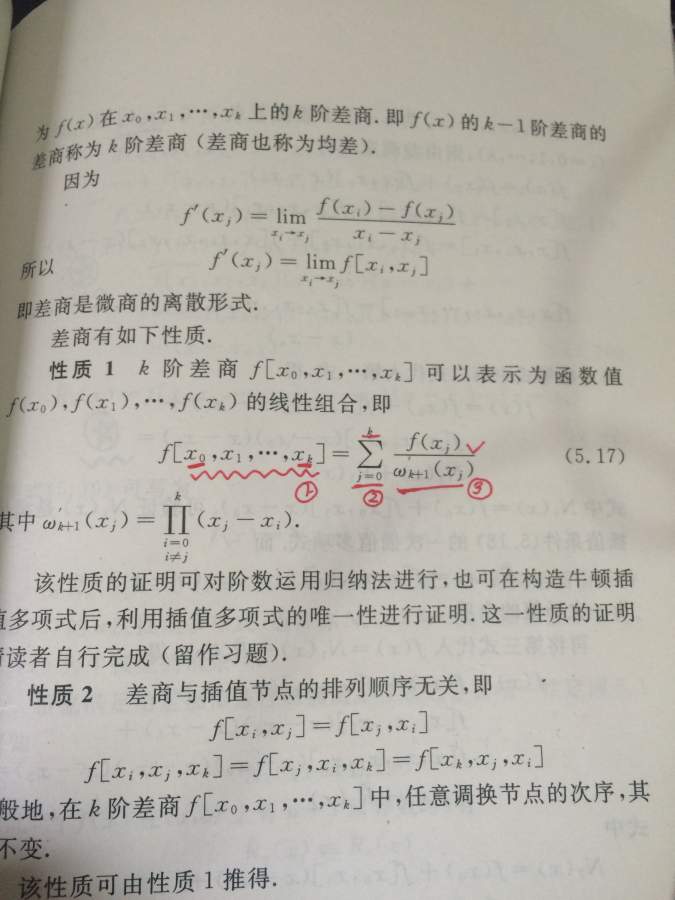 为 f(x) 在 x₀,x₁,…,xₖ 上的 k 阶差商. 即 f(x) 的 k−1 阶差商的
差商称为 k 阶差商 (差商也称为均差).
因为
f′(xⱼ) = lim_{xᵢ→xⱼ} (f(xᵢ)−f(xⱼ))/(xᵢ−xⱼ)
所以 f′(xⱼ) = lim_{xᵢ→xⱼ} f[xᵢ,xⱼ]
即差商是微商的离散形式.
差商有如下性质.
性质 1 k 阶差商 f[x₀,x₁,…,xₖ] 可以表示为函数值
f(x₀),f(x₁),…,f(xₖ) 的线性组合,即
f[x₀,x₁,…,xₖ] = ∑_{j=0}^{k} f(xⱼ)/ω′ₖ₊₁(xⱼ) (5.17)
① ② ③
其中 ω′ₖ₊₁(xⱼ) = ∏_{i=0, i≠j}^{k} (xⱼ−xᵢ).
该性质的证明可对阶数运用归纳法进行,也可在构造牛顿插
值多项式后,利用插值多项式的唯一性进行证明. 这一性质的证明
请读者自行完成 (留作习题).
性质 2 差商与插值节点的排列顺序无关,即
f[xᵢ,xⱼ] = f[xⱼ,xᵢ]
f[xᵢ,xⱼ,xₖ] = f[xⱼ,xᵢ,xₖ] = f[xₖ,xⱼ,xᵢ]
般地,在 k 阶差商 f[x₀,x₁,…,xₖ] 中,任意调换节点的次序,其
不变.
该性质可由性质 1 推得.